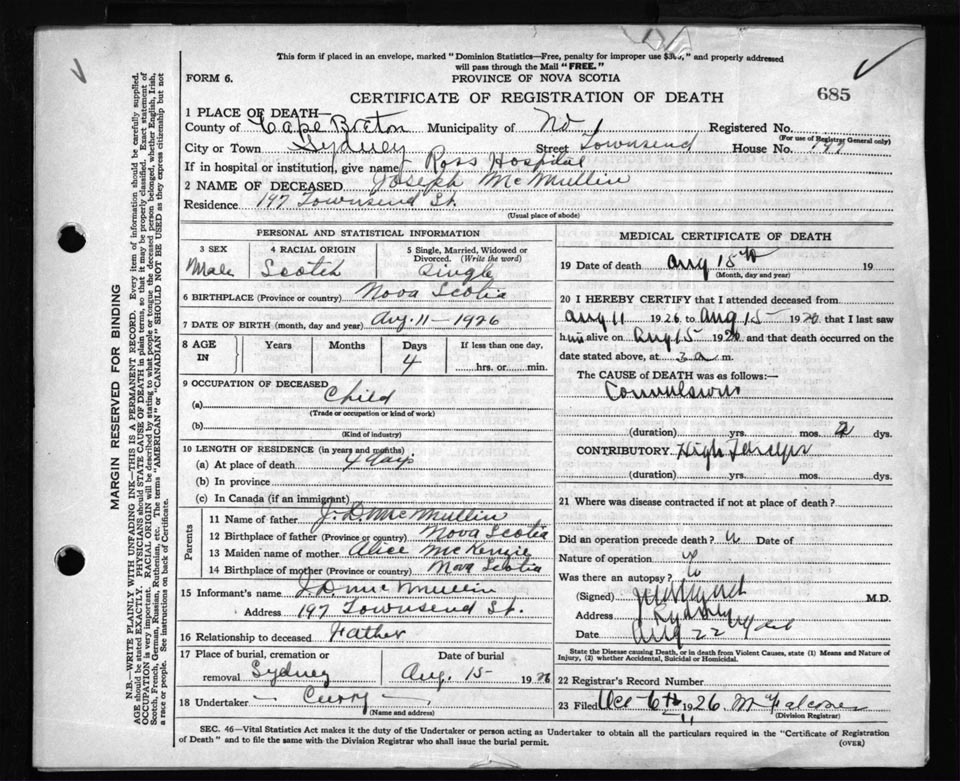 This form if placed in an envelope, marked "Dominion Statistics—Free, penalty for improper use $300," and properly addressed
will pass through the Mail "FREE."
FORM 6. PROVINCE OF NOVA SCOTIA
CERTIFICATE OF REGISTRATION OF DEATH 685
1 PLACE OF DEATH—
County of Cape Breton Municipality of No 1 Registered No.
(For use of Registrar General only)
City or Town Sydney Street Townsend House No. 197
If in hospital or institution, give name Ross Hospital
2 NAME OF DECEASED Joseph McMullin
Residence 197 Townsend St.
(Usual place of abode)
PERSONAL AND STATISTICAL INFORMATION
3 SEX 4 RACIAL ORIGIN 5 Single, Married, Widowed or
Divorced. (Write the word)
Male Scotch Single
6 BIRTHPLACE (Province or country) Nova Scotia
7 DATE OF BIRTH (month, day and year) Aug. 11 - 1926
8 AGE IN Years Months Days If less than one day,
4 hrs. or min.
9 OCCUPATION OF DECEASED
(a) Child
(Trade or occupation or kind of work)
(b)
(Kind of industry)
10 LENGTH OF RESIDENCE (in years and months)
(a) At place of death 4 days
(b) In province
(c) In Canada (if an immigrant)
Parents
11 Name of father J. D. McMullin
12 Birthplace of father (Province or country) Nova Scotia
13 Maiden name of mother Alice McKenzie
14 Birthplace of mother (Province or country) Nova Scotia
15 Informant's name J D McMullin
Address 197 Townsend St.
16 Relationship to deceased Father
17 Place of burial, cremation or Date of burial
removal Sydney Aug. 15- 1926
18 Undertaker - Curry -
(Name and address)
MEDICAL CERTIFICATE OF DEATH
19 Date of death Aug 15th 19
(Month, day and year)
20 I HEREBY CERTIFY that I attended deceased from
Aug 11 1926 to Aug 15 - 1926 that I last saw
him alive on Aug 15 1926 and that death occurred on the
date stated above, at 3 a m.
The CAUSE of DEATH was as follows:—
Convulsions
(duration) yrs. mos. 2 dys.
CONTRIBUTORY. High
(duration) yrs. mos. dys.
21 Where was disease contracted if not at place of death?
Did an operation precede death? Date of
Nature of operation
Was there an autopsy?
(Signed) M.D.
Address Sydney
Date Aug 22
State the Disease causing Death, or in death from Violent Causes, state (1) Means and Nature of
Injury, (2) whether Accidental, Suicidal or Homicidal.
22 Registrar's Record Number
23 Filed Dec 6th 1926 M Falconer
(Division Registrar)
SEC. 46—Vital Statistics Act makes it the duty of the Undertaker or person acting as Undertaker to obtain all the particulars required in the "Certificate of Registration
of Death" and to file the same with the Division Registrar who shall issue the burial permit. (OVER)
MARGIN RESERVED FOR BINDING
N.B.—WRITE PLAINLY WITH UNFADING INK—THIS IS A PERMANENT RECORD. Every item of information should be carefully supplied.
AGE should be stated EXACTLY. PHYSICIANS should STATE CAUSE OF DEATH in plain terms, so that it may be properly classified. Exact statement of
OCCUPATION is very important. RACIAL ORIGIN will be described by stating to what people or tongue the deceased person belonged, whether English, Irish,
Scotch, French, German, Russian, Ruthenian, etc. The terms "AMERICAN" or "CANADIAN" SHOULD NOT BE USED as they express citizenship but not
a race or people. See instructions on back of Certificate.